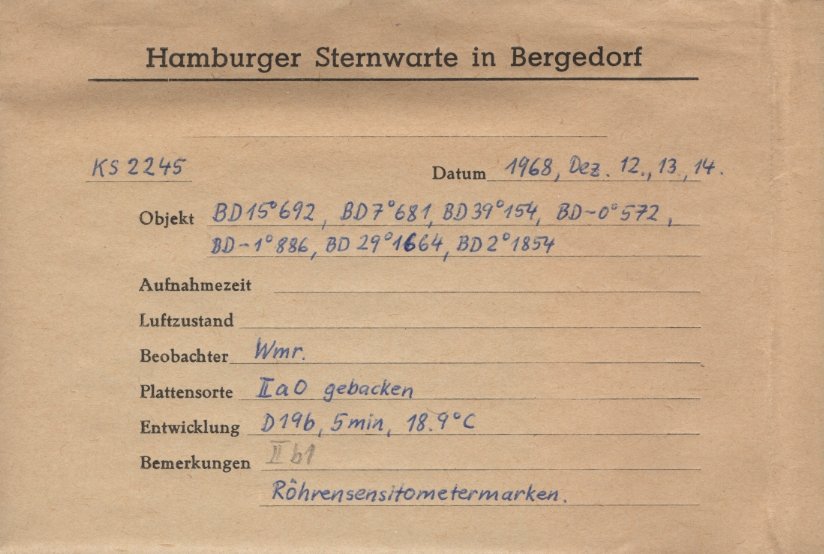 Hamburger Sternwarte in Bergedorf
KS 2245
Datum 1968, Dez. 12., 13., 14.
Objekt BD15°692, BD7°681, BD39°154, BD-0°572,
BD-1°886, BD29°1664, BD2°1854
Aufnahmezeit
Luftzustand
Beobachter Wmr.
Plattensorte IIaO gebacken
Entwicklung D19b, 5min, 18.9°C
Bemerkungen II b1
Röhrensensitometermarken.